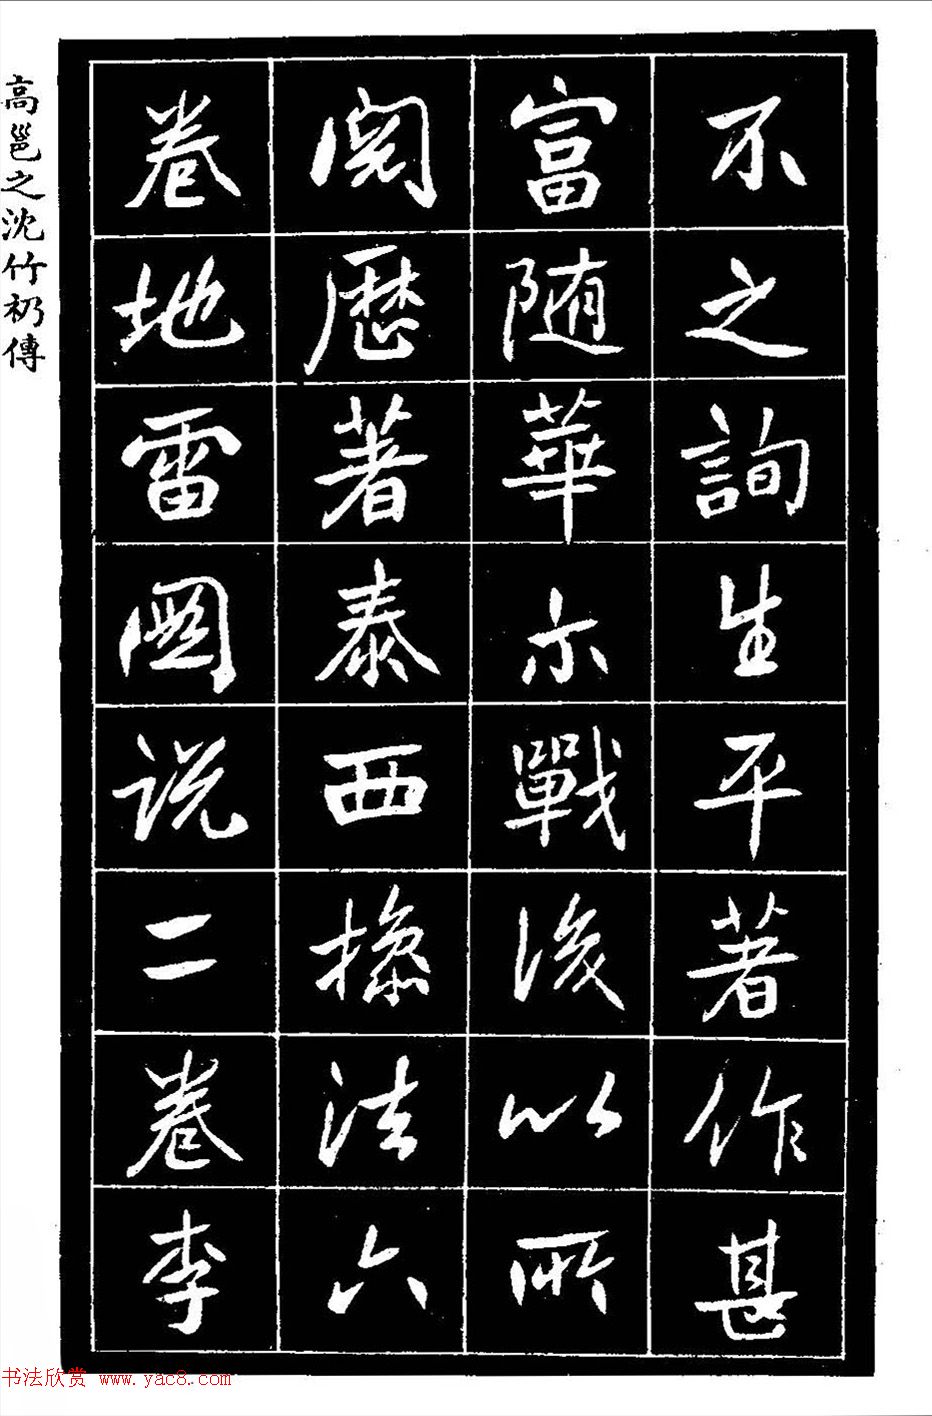 不之詢生平著作甚
富随華示戰後以所
閱歷著泰西操法六
卷地雷圖説二卷李
高邕之沈竹礽傳
书法欣赏 www.yac8.com